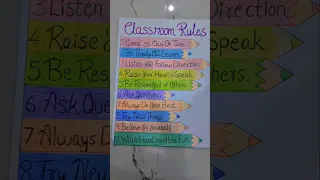 Classroom Rules
1. Come To Class On Time
2. Be Ready To Learn
3. Listen And Follow Direction
4. Raise Your Hand To Speak
5. Be Respectful of Others
6. Ask Questions
7. Always Do Your Best
8. Try New Things
9. Believe In Yourself
10. Work Hard and Have Fun
3. Listen
4. Raise
5. Be Res
6. Ask Que
7. Always D
8. Try New
Direction
Speak
Others.